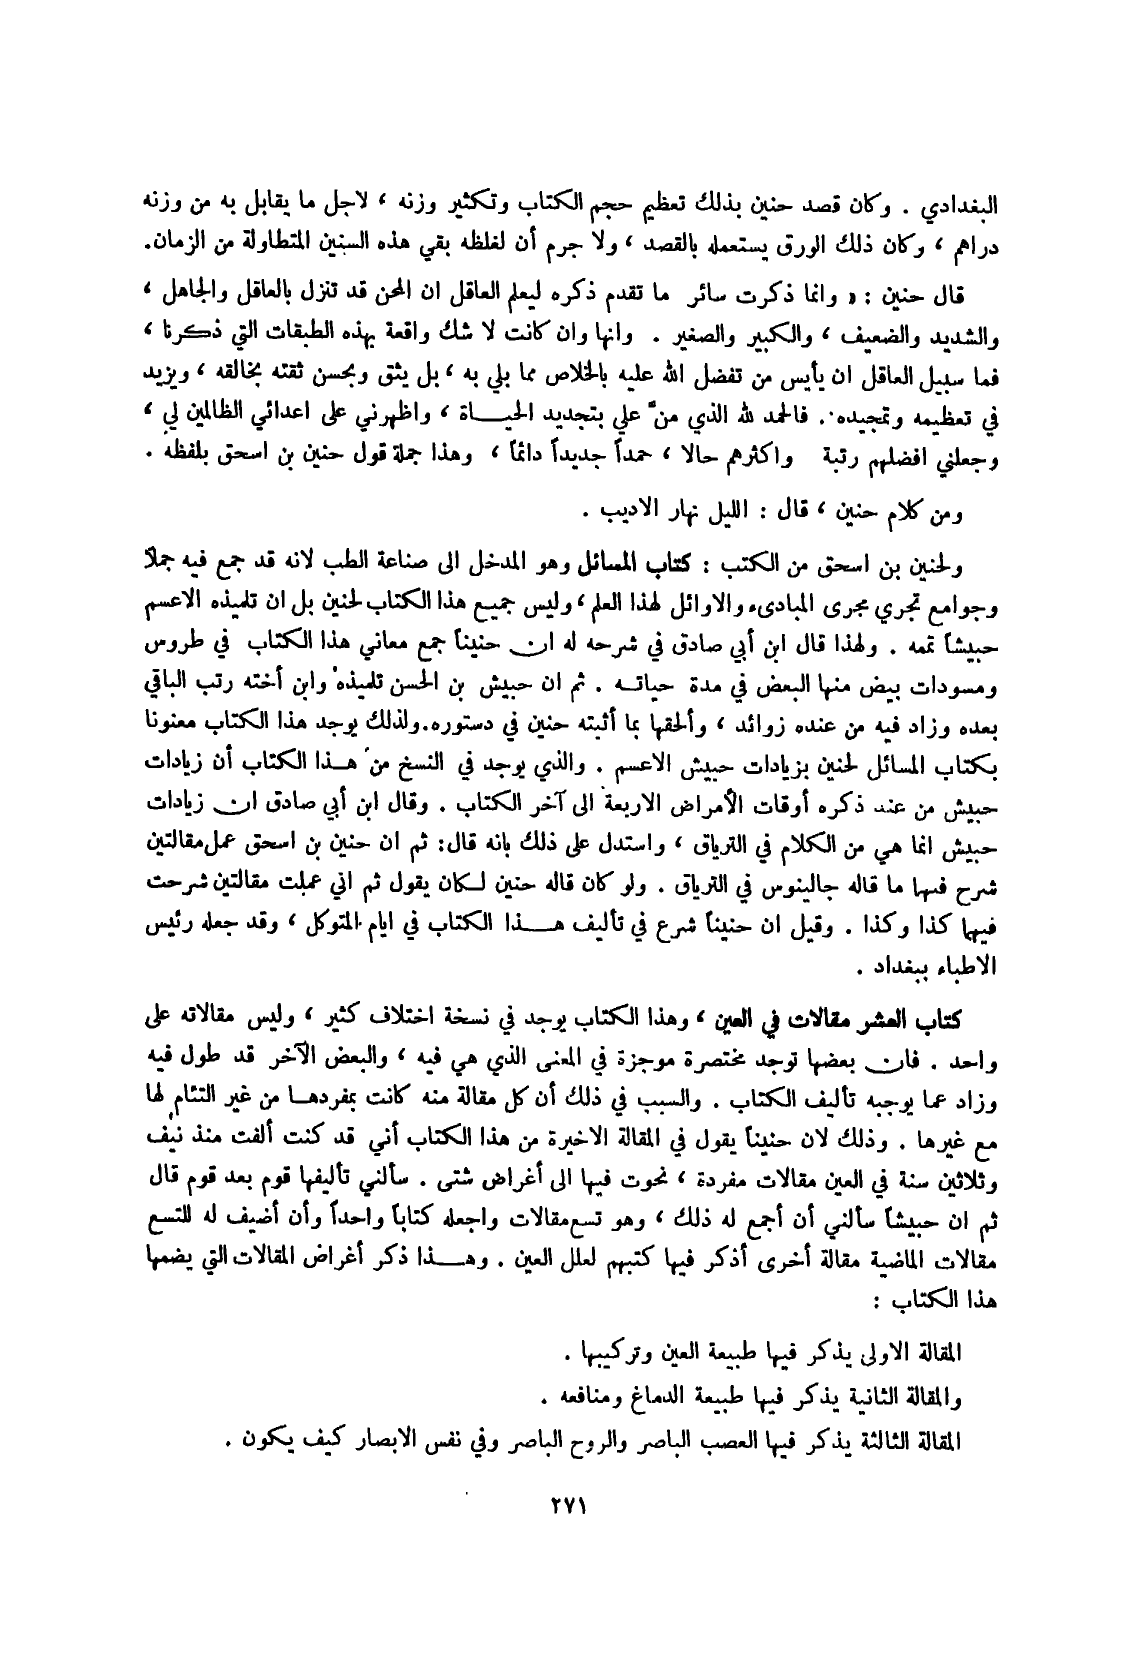 البغدادي . وكان قصد حنين بذلك تعظيم حجم الكتاب وتكثير وزنه ، لاجل ما يقابل به من وزنه
دراهم ، وكان ذلك الورق يستعمله بالقصد ، ولا جرم أن لغلظه بقي هذه السنين المتطاولة من الزمان.
قال حنين : « وانما ذكرت سائر ما تقدم ذكره ليعلم العاقل ان المحن قد تنزل بالعاقل والجاهل ،
والشديد والضعيف ، والكبير والصغير . وانها وان كانت لا شك واقعة بهذه الطبقات التي ذكرنا ،
فما سبيل العاقل ان يأيس من تفضل الله عليه بالخلاص مما بلي به ، بل يثق وبحسن ثقته بخالقه ، ويزيد
في تعظيمه وتمجيده . فالحمد لله الذي منّ علي بتجديد الحيـــاة ، واظهرني على اعدائي الظالمين لي ،
وجعلني افضلهم رتبة واكثرهم حالا ، حمداً جديداً دائماً ، وهذا جملة قول حنين بن اسحق بلفظه .
ومن كلام حنين ، قال : الليل نهار الاديب .
ولحنين بن اسحق من الكتب : كتاب المسائل وهو المدخل الى صناعة الطب لانه قد جمع فيه جملاً
وجوامع تجري مجرى المبادىء والاوائل لهذا العلم ، وليس جميع هذا الكتاب لحنين بل ان تلميذه الاعسم
حبيشاً تممه . ولهذا قال ابن أبي صادق في شرحه له ان حنيناً جمع معاني هذا الكتاب في طروس
ومسودات بيض منها البعض في مدة حياتـه . ثم ان حبيش بن الحسن تلميذه وابن أخته رتب الباقي
بعده وزاد فيه من عنده زوائد ، وألحقها بما أثبته حنين في دستوره.ولذلك يوجد هذا الكتاب معنونا
بكتاب المسائل لحنين بزيادات حبيش الاعسم . والذي يوجد في النسخ من هـذا الكتاب أن زيادات
حبيش من عند ذكره أوقات الأمراض الاربعة الى آخر الكتاب . وقال ابن أبي صادق ان زيادات
حبيش انما هي من الكلام في الترياق ، واستدل على ذلك بانه قال: ثم ان حنين بن اسحق عمل مقالتين
شرح فيهما ما قاله جالينوس في الترياق . ولو كان قاله حنين لـكان يقول ثم اني عملت مقالتين شرحت
فيهما كذا وكذا . وقيل ان حنيناً شرع في تأليف هـــذا الكتاب في ايام المتوكل ، وقد جعله رئيس
الاطباء ببغداد .
كتاب العشر مقالات في العين ، وهذا الكتاب يوجد في نسخة اختلاف كثير ، وليس مقالاته على
واحد . فان بعضها توجد مختصرة موجزة في المعنى الذي هي فيه ، والبعض الآخر قد طول فيه
وزاد عما يوجبه تأليف الكتاب . والسبب في ذلك أن كل مقالة منه كانت بمفردهـا من غير التئام لها
مع غيرها . وذلك لان حنيناً يقول في المقالة الاخيرة من هذا الكتاب أني قد كنت ألفت منذ نيف
وثلاثين سنة في العين مقالات مفردة ، نحوت فيها الى أغراض شتى . سألني تأليفها قوم بعد قوم قال
ثم ان حبيشاً سألني أن أجمع له ذلك ، وهو تسع مقالات واجعله كتاباً واحداً وأن أضيف له للتسع
مقالات الماضية مقالة أخرى أذكر فيها كتبهم لعلل العين . وهـــذا ذكر أغراض المقالات التي يضمها
هذا الكتاب :
المقالة الاولى يذكر فيها طبيعة العين وتركيبها .
والمقالة الثانية يذكر فيها طبيعة الدماغ ومنافعه .
المقالة الثالثة يذكر فيها العصب الباصر والروح الباصر وفي نفس الابصار كيف يكون .
٢٧١